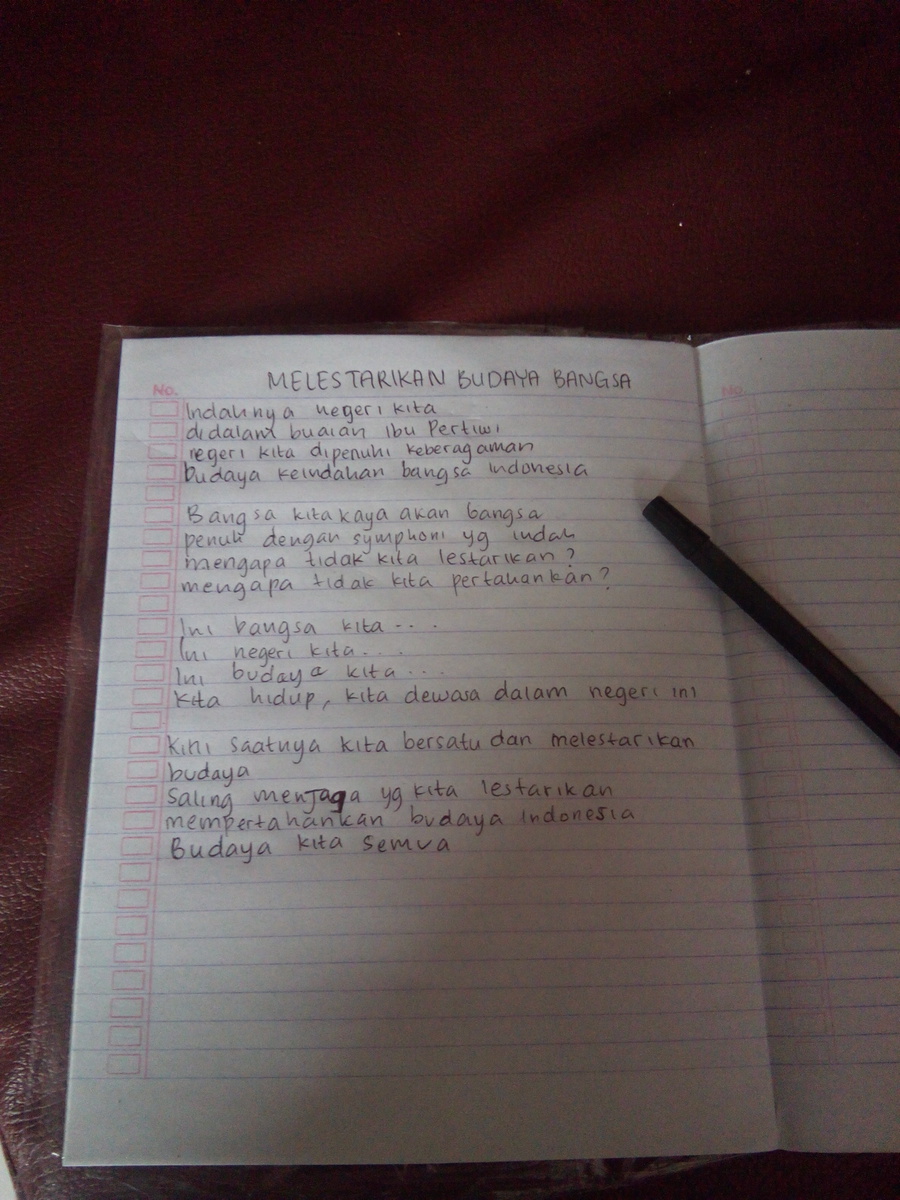 No.
MELESTARIKAN BUDAYA BANGSA
Indahnya negeri kita
didalam buaian Ibu Pertiwi
negeri kita dipenuhi keberagaman
budaya keindahan bangsa Indonesia
Bangsa kita kaya akan bangsa
penuh dengan symphoni yg indah
mengapa tidak kita lestarikan?
mengapa tidak kita pertahankan?
Ini bangsa kita....
Ini negeri kita....
Ini budaya kita...
Kita hidup, kita dewasa dalam negeri ini
Kini saatnya kita bersatu dan melestarikan
budaya
Saling menjaga yg kita lestarikan
mempertahankan budaya Indonesia
Budaya kita semua
No.